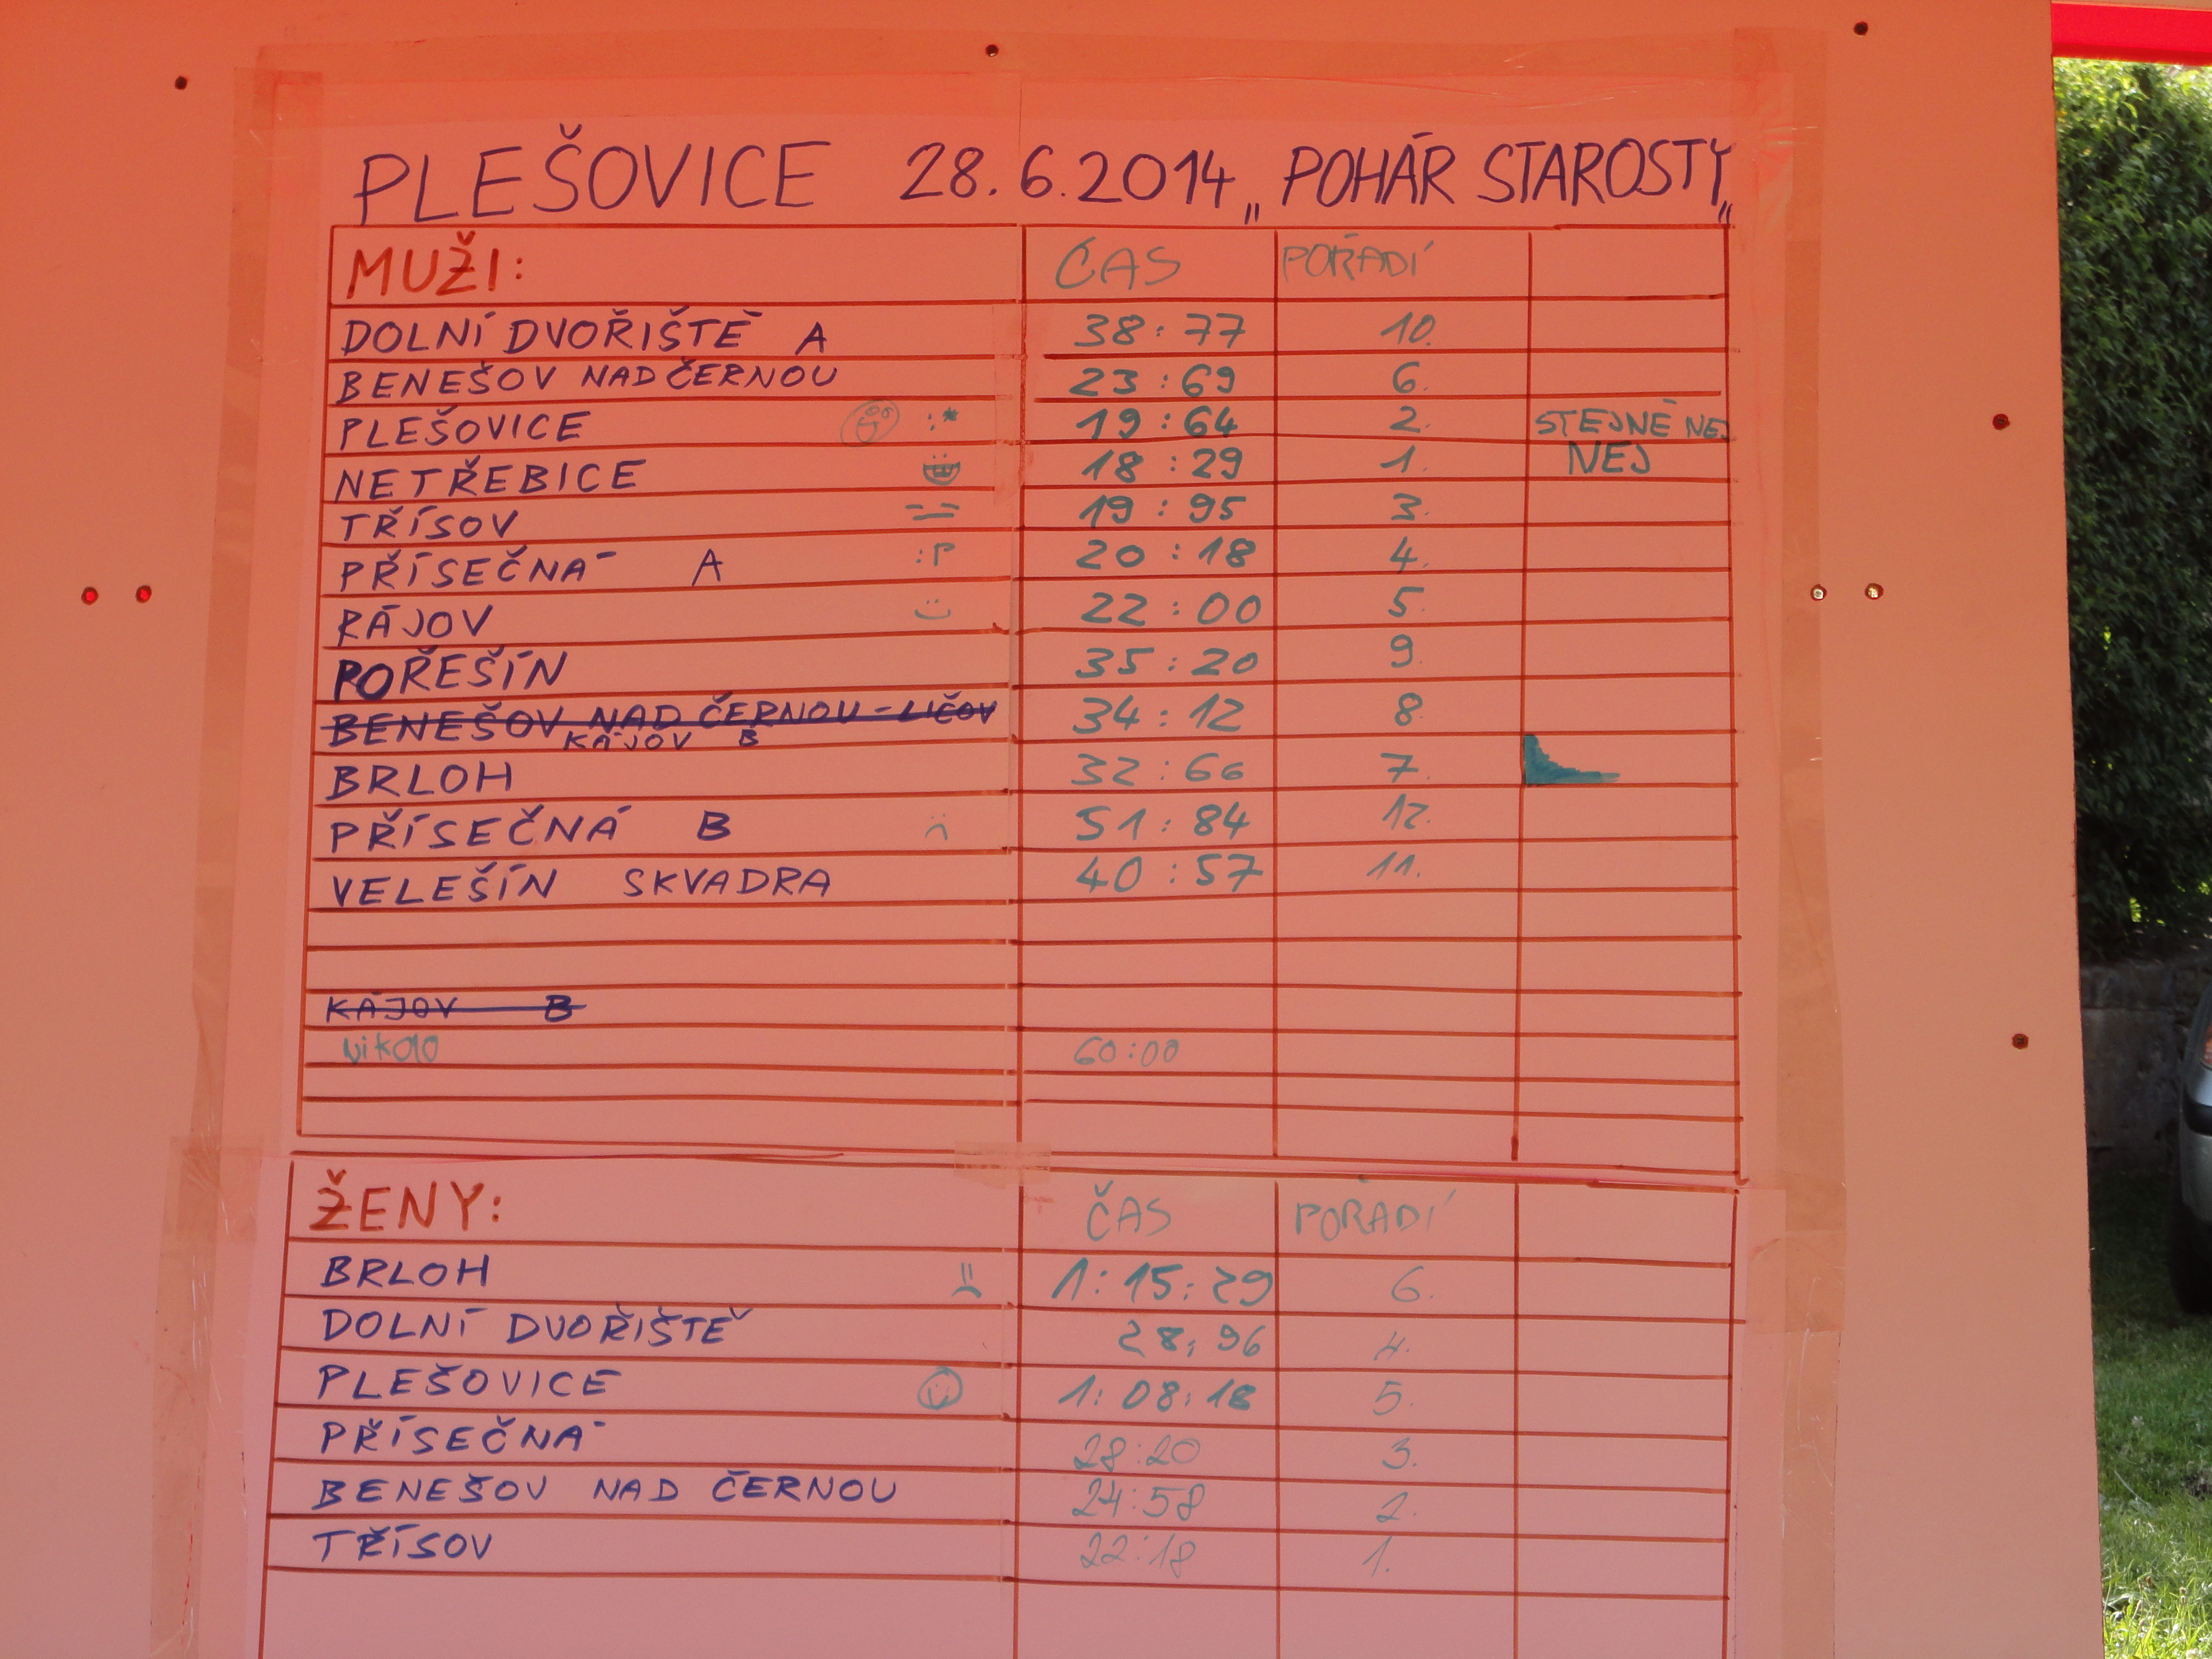 PLEŠOVICE 28.6.2014 „POHÁR STAROSTY„
MUŽI: ČAS POŘADÍ
DOLNÍ DVOŘIŠTĚ A 38:77 10.
BENEŠOV NAD ČERNOU 23:69 6.
PLEŠOVICE :* 19:64 2. STEJNĚ NEJ
NETŘEBICE 18:29 1. NEJ
TŘÍSOV 19:95 3.
PŘÍSEČNÁ A :P 20:18 4.
KÁJOV 22:00 5.
POŘEŠÍN 35:20 9.
BENEŠOV NAD ČERNOU - LIČOV 34:12 8.
KÁJOV B
BRLOH 32:66 7.
PŘÍSEČNÁ B 51:84 12.
VELEŠÍN SKVADRA 40:57 11.
KÁJOV B
60:00
ŽENY: ČAS POŘADÍ
BRLOH 1:15:29 6.
DOLNÍ DVOŘIŠTĚ 28:96 4.
PLEŠOVICE 1:08:18 5.
PŘÍSEČNÁ 28:20 3.
BENEŠOV NAD ČERNOU 24:58 2.
TŘÍSOV 22:18 1.